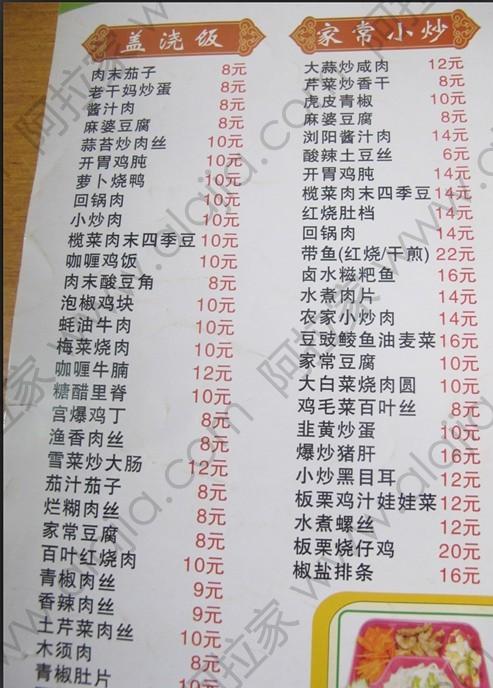 盖浇饭
肉末茄子 8元
老干妈炒蛋 8元
酱汁肉 8元
麻婆豆腐 8元
蒜苔炒肉丝 10元
开胃鸡肫 10元
萝卜烧鸭 10元
回锅肉 10元
小炒肉 10元
榄菜肉末四季豆 10元
咖喱鸡饭 10元
肉末酸豆角 8元
泡椒鸡块 10元
蚝油牛肉 10元
梅菜烧肉 10元
咖喱牛腩 12元
糖醋里脊 10元
宫爆鸡丁 8元
渔香肉丝 8元
雪菜炒大肠 12元
茄汁茄子 8元
烂糊肉丝 8元
家常豆腐 8元
百叶红烧肉 10元
青椒肉丝 9元
香辣肉丝 9元
土芹菜肉丝 10元
木须肉 8元
青椒肚片 10元
家常小炒
大蒜炒咸肉 12元
芹菜炒香干 8元
虎皮青椒 10元
麻婆豆腐 8元
浏阳酱汁肉 14元
酸辣土豆丝 6元
开胃鸡肫 14元
榄菜肉末四季豆 14元
红烧肚档 14元
回锅肉 14元
带鱼(红烧/干煎) 22元
卤水糍粑鱼 16元
水煮肉片 14元
农家小炒肉 14元
豆豉鲮鱼油麦菜 16元
家常豆腐 10元
大白菜烧肉圆 10元
鸡毛菜百叶丝 8元
韭黄炒蛋 10元
爆炒猪肝 16元
小炒黑目耳 12元
板栗鸡汁娃娃菜 12元
水煮螺丝 12元
板栗烧仔鸡 20元
椒盐排条 16元
阿拉家 www.alajia.com